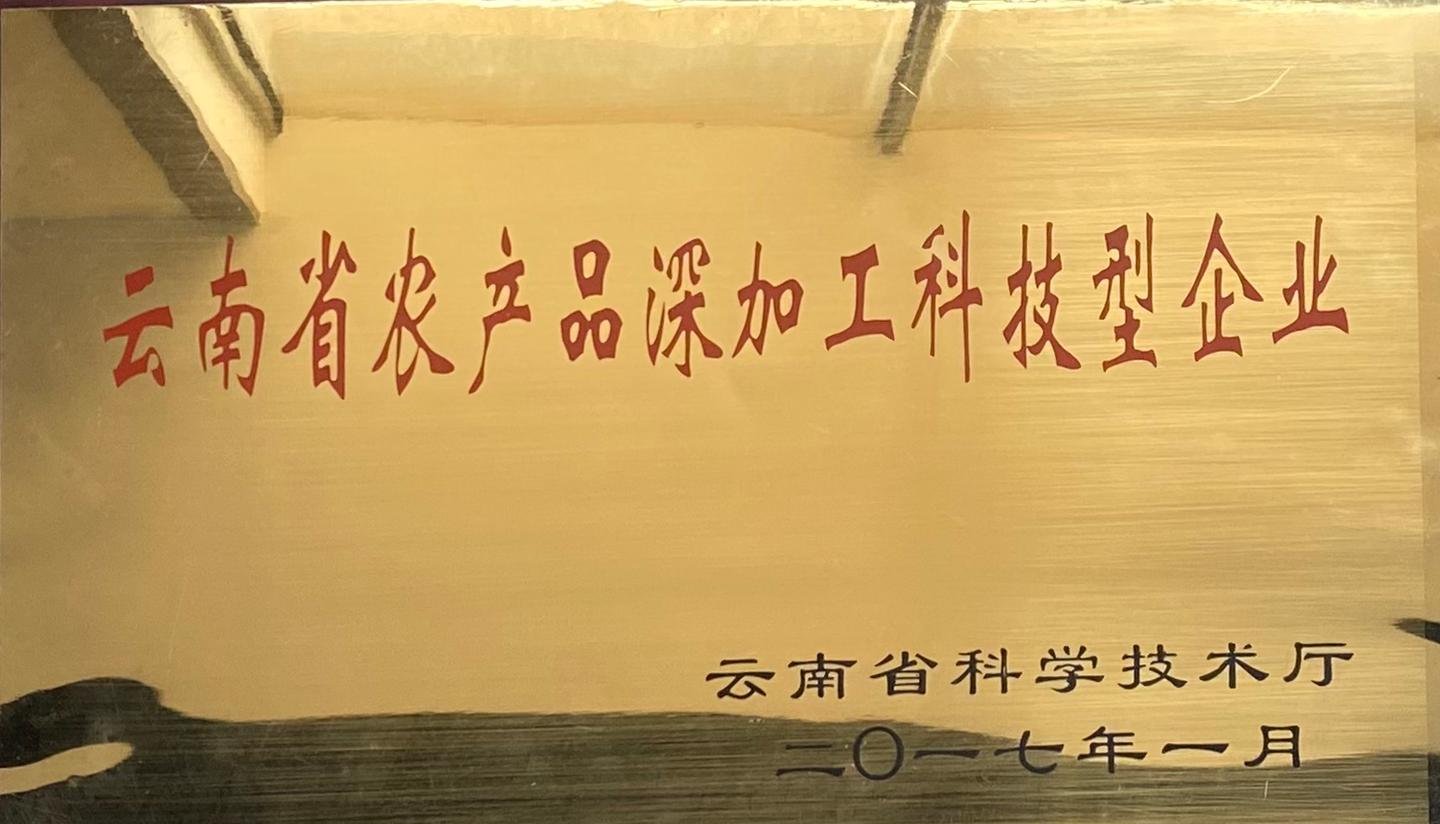 云南省农产品深加工科技型企业
云南省科学技术厅
二〇一七年一月